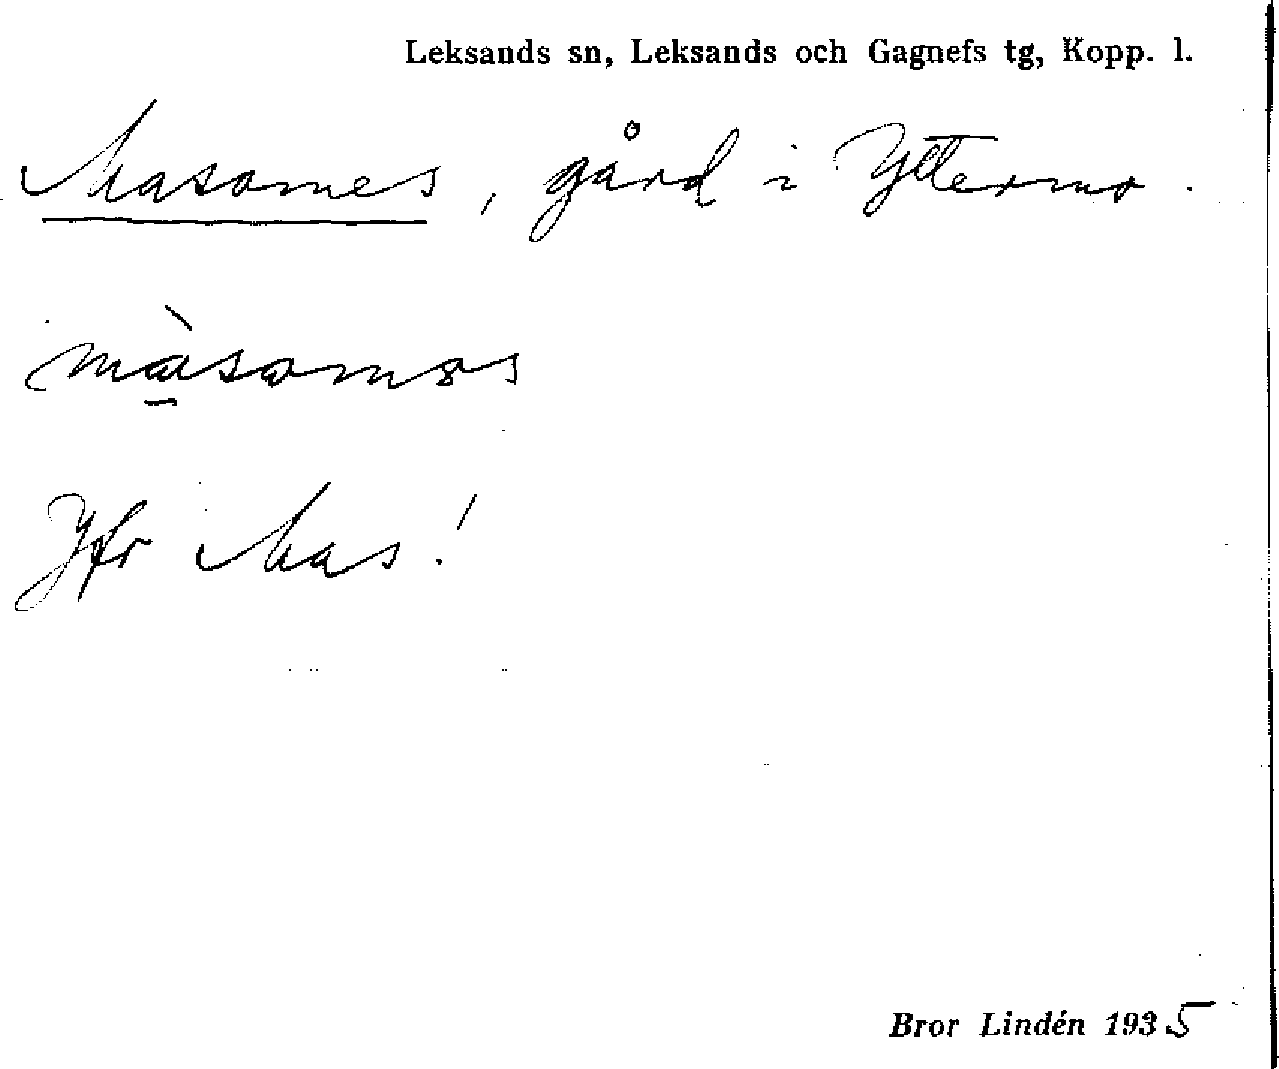 Leksands sn, Leksands och Gagnefs tg, Kopp. l.
Masomes, gård i Yttermo.
Jfr Mas!
Bror Lindén 1935